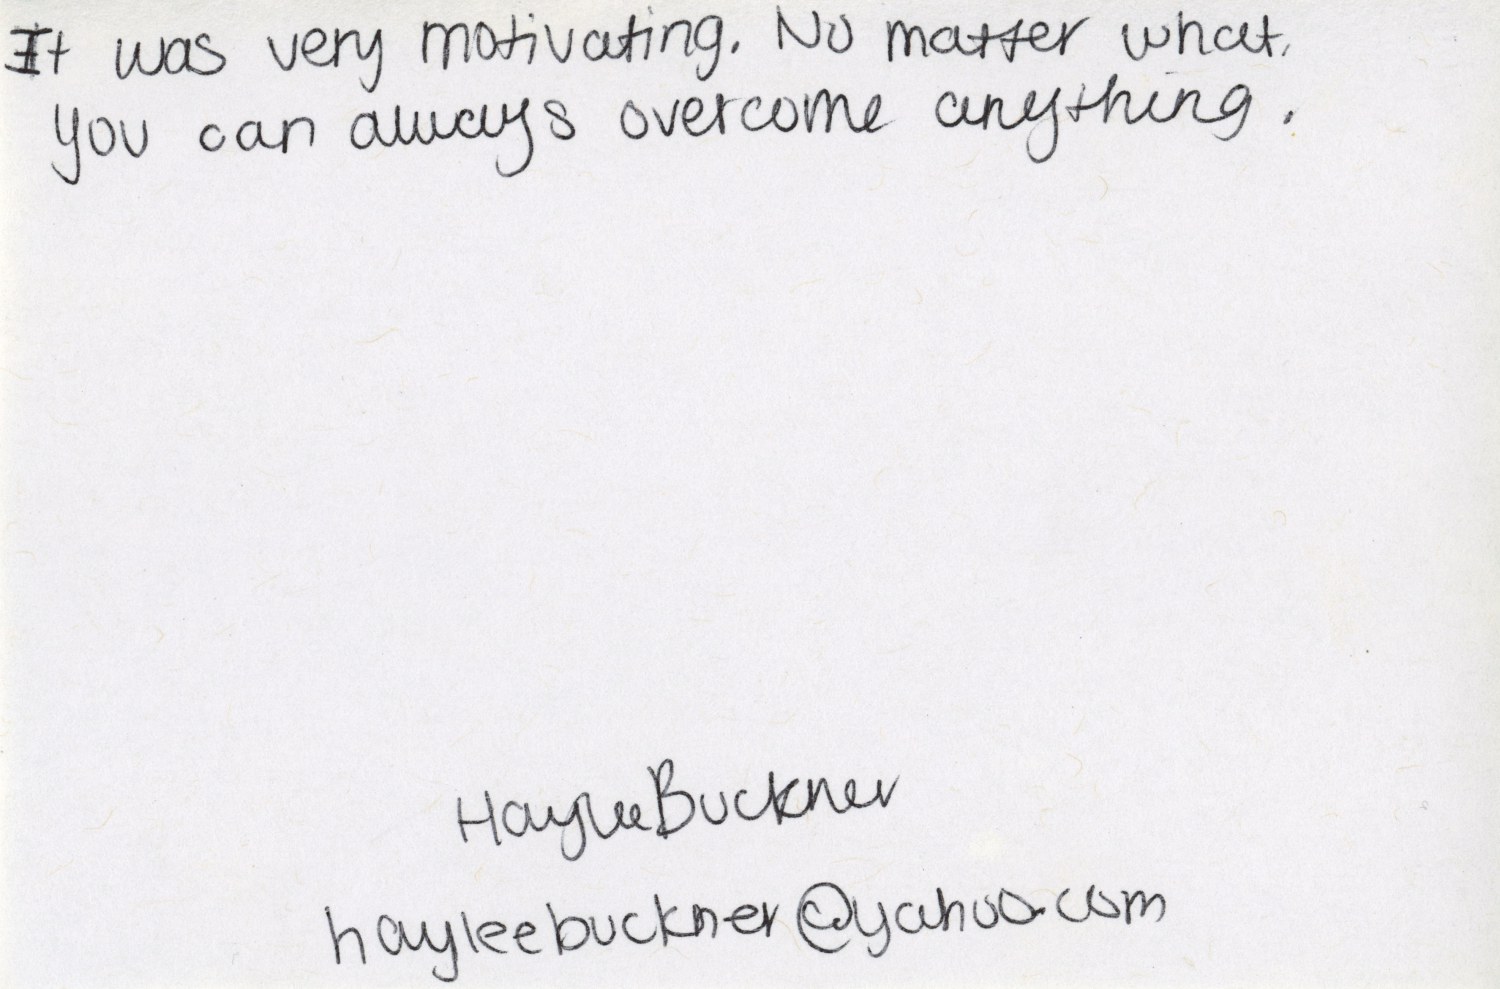 It was very motivating. No matter what.
you can always overcome anything.
Haylee Buckner
hayleebuckner@yahoo.com